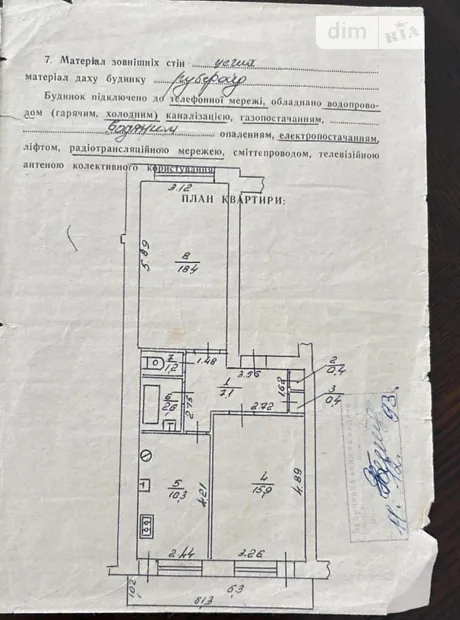 dim RIA
7. Матеріал зовнішніх стін цегла
матеріал даху будинку рубероїд
Будинок підключено до телефонної мережі, обладнано водопрово-
дом (гарячим, холодним) каналізацією, газопостачанням,
водяним опаленням, електропостачанням,
ліфтом, радіотрансляційною мережею, сміттєпроводом, телевізійною
антеною колективного користування
ПЛАН КВАРТИРИ:
3.12
5.89
8
18.4
7
1.2
1.48
3.56
2
0.4
1
7.1
1.62
3
0.4
6
2.6
2.75
2.72
5
10.3
4.21
4
15.9
4.89
2.44
3.26
1.02
6.3
8.13